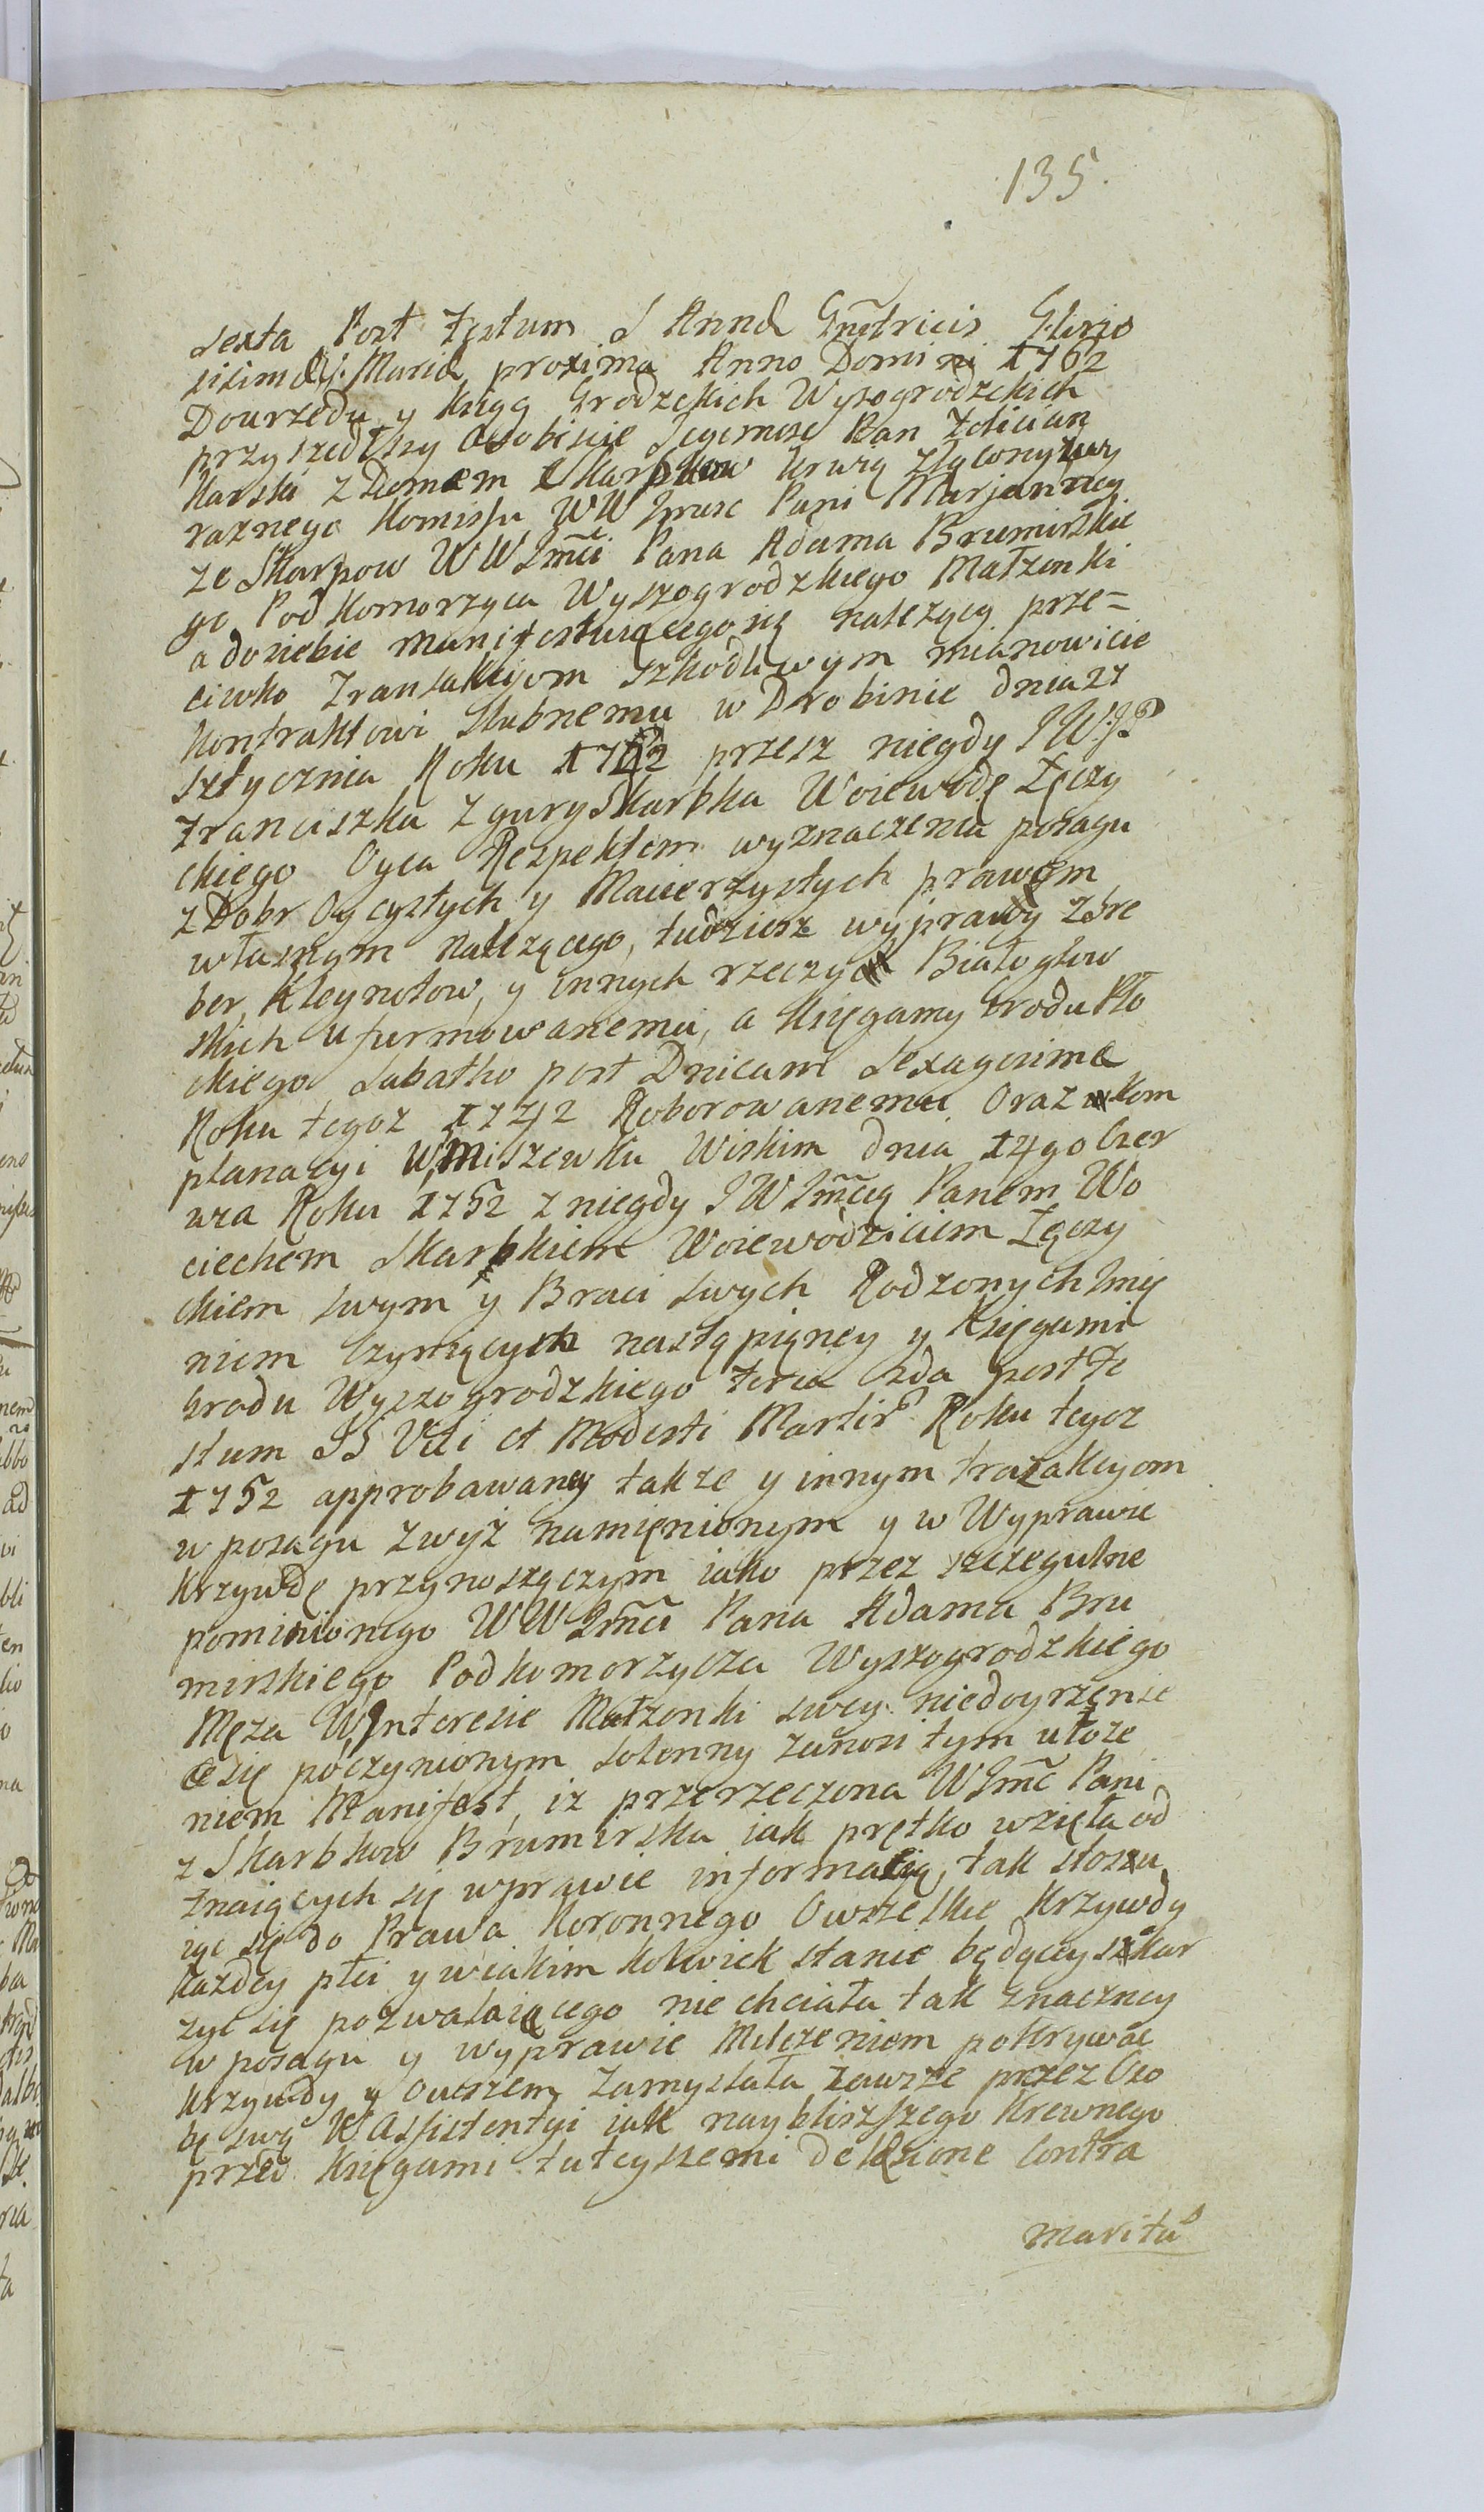 135.
Sexta Post Festum S Annæ Gnẽtricis Glorio
sisimæ V: Mariæ proxima Anno Domini 1762
Dourzędu y Kśiąg Grodzckich Wyszogrodzckich
przyszedłszy Osobiscie Jegomosc Pan Felician
Karski z Domem Skarbkow krwią złączony zwy
raznego Komissu WW Jmsc Pani Marjanny
ze Skarpow WW Jmści Pana Adama Brumirskie
go Podkomorzyca Wyszogrodzkiego Małzonki
a do siebie manifestuiącego się nalezący prze=
ciwko Transakcyom szkodliwym mianowicie
kontraktowi Slubnemu w Drobinie dnia 27
sztycznia Roku 1742 przesz niegdy JW:JP
Franciszka z gury Skarbka Woiewodę Łęczy
ckiego Oyca Respektem wyznaczenia posagu
z Dobr Oycystych y Macierzystych prawem
własnym nalezącego, tudziesz wyprawy Sre
ber, Kleynotow, y innych rzeczych Białogłow
skich uformowanemu, a Księgamy Grodu Pło
ckiego Sabatho post Dnicam Sexagesimæ
Roku tegoz 1742 Roborowanemu Oraz Kom
planacyi W Miszewku Wiskim dnia 14go Czer
wca Roku 1752 z niegdy JW Jmcią Panem Wo
ciechem Skarbkiem Woiewodzicem Łęczy
ckiem swym y Braci swych Rodzonych Imię
niem Czyniących nastąpioney y Księgami
Grodu Wyszogrodzkiego feria 2da post Fe
stum SS Viti et Modesti Martirũ Roku tegoz
1752 approbawaney takze y innym trazakcyom
w posagu zwyż namięnionym y w Wyprawie
krzywdę przynoszączym iako przez szczegulne
pominionego WW Jmści Pana Adama Bru
mirskiego Podkomorzycza Wyszogrodzkiego
Męza W Interesie Małzonki swey niedoyrzęnie
się poczynionym solenny zanosi tym ułoze
niem Manifest, iz przerzeczona W Jmć Pani
z Skarbkow Brumirska iak prętko wzięła od
znaiących się w prawie informacią, tak stosu
iąc się do Prawa Koronnego Owszelkie Krzywdy
kazdey płci y wiakim kolwiek stanie będącey skar
zyc się pozwalaiącego nie chciała tak znaczney
w posagu y wyprawie Milczeniem pokrywac
krzywdy y Owszem zamyslała zawsze przez Oso
bę swą W Assistentyi iak naybliszszego Krewnego
przed Księgami tuteyszemi delezione Contra
maritũ